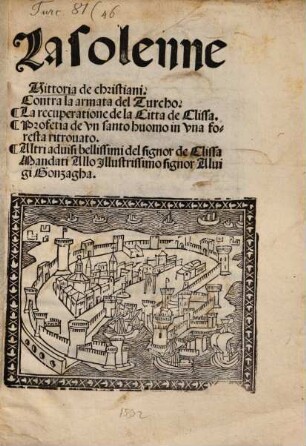 Turc. 81 (46
La solenne
Vittoria de christiani.
Contra la armata del Turcho.
¶ La recuperatione de la Citta de Clissa.
¶ Profetia de vn santo huomo in vna fo-
resta ritrouato.
¶ Altri aduisi bellissimi del signor de Clissa
Mandati Allo Illustrissimo signor Alui
gi Gonzagha.
1532